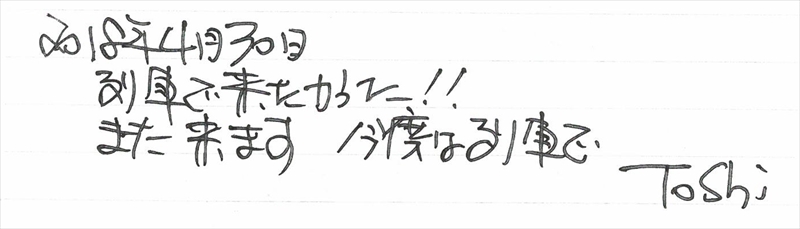 2018年4月30日
列車で来たかった!!
また来ます 今度は列車で
Toshi